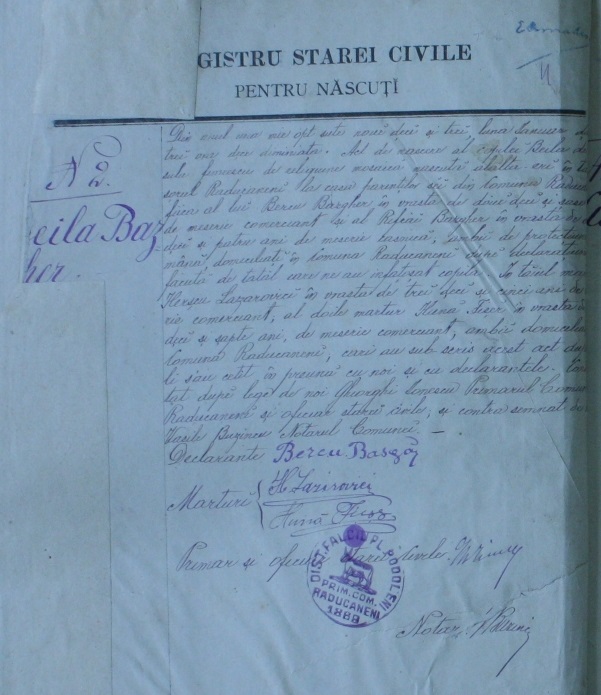 GISTRU STAREI CIVILE
PENTRU NĂSCUȚĬ
N 2.
eila Baz
her.
Din anul una mie opt sute nouă deci și trei, luna Ianuar
trei ore diminiața. Act de nascere al
sex femeesc de religiune mosaică născută alaltă eri în
socul Raducaneni la casa parenților sei din Comuna Raduc
fiica al lui Bercu Bazgher în vrasta de două deci și
de meserie comerciant și al Refcăi Bazgher în vrasta de
deci și patru ani de meserie casnică, ambii de protecțiune
domiciliați în Comuna Raducaneni după declarațiunea
facută de tatăl care ne au infatoșat copila. Intâiul mar
Herșcu Lazarovici în vrasta de trei deci și cinci ani de
rie comerciant, al doile martur Hună Fuser în vrasta
deci și șapte ani, de meserie comerciant, ambii domiciliaț
Comuna Raducaneni, carii au sub scris acest act dup
li s'au cetit în preună cu noi și cu declarantele.
tat după lege de noi Gheorghi Ionescu Primarul Comun
Raducaneni și oficiar stărei civile, și contra semnat de
Vasile Notarul Comunei. —
Declarante Bercu
Marturi { H Lazarovici
Hună
Primar și oficiar stărei civile
DIST. FALCIU PL. PODOLENI
PRIM. COM.
RADUCANENI
1888
Notar,